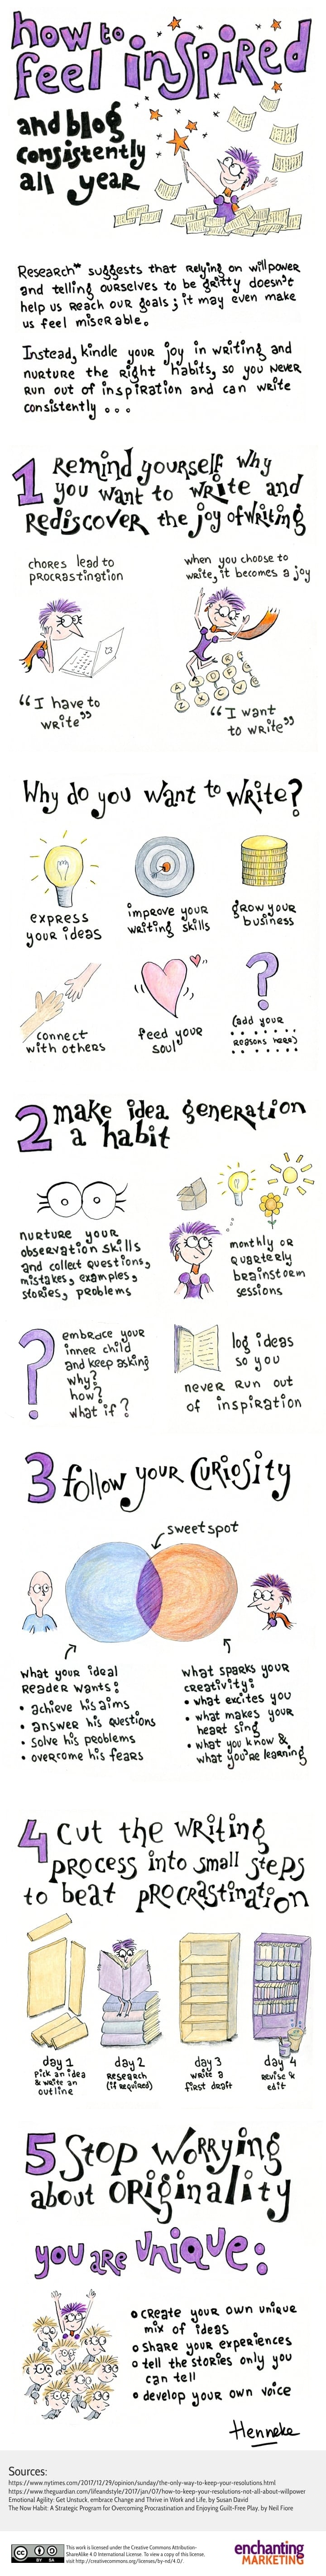 how to
feel inspired
and blog
consistently
all year
Research* suggests that relying on willpower
and telling ourselves to be gritty doesn't
help us reach our goals; it may even make
us feel miserable.
Instead, kindle your joy in writing and
nurture the right habits, so you never
run out of inspiration and can write
consistently ...
1 Remind yourself why
you want to write and
rediscover the joy of writing
chores lead to
procrastination
"I have to
write"
when you choose to
write, it becomes a joy
"I want
to write"
Why do you want to write?
express
your ideas
improve your
writing skills
grow your
business
connect
with others
feed your
soul
?
(add your
reasons here)
2 make idea generation
a habit
nurture your
observation skills
and collect questions,
mistakes, examples,
stories, problems
monthly or
quarterly
brainstorm
sessions
?
embrace your
inner child
and keep asking
why?
how?
what if?
log ideas
so you
never run out
of inspiration
3 follow your curiosity
sweet spot
what your ideal
reader wants:
• achieve his aims
• answer his questions
• solve his problems
• overcome his fears
what sparks your
creativity:
• what excites you
• what makes your
heart sing
• what you know &
what you're learning
4 Cut the writing
process into small steps
to beat procrastination
day 1
Pick an idea
& write an
outline
day 2
Research
(if required)
day 3
write a
first draft
day 4
Revise &
edit
5 Stop worrying
about originality
you are unique:
• create your own unique
mix of ideas
• share your experiences
• tell the stories only you
can tell
• develop your own voice
Henneke
Sources:
https://www.nytimes.com/2017/12/29/opinion/sunday/the-only-way-to-keep-your-resolutions.html
https://www.theguardian.com/lifeandstyle/2017/jan/07/how-to-keep-your-resolutions-not-all-about-willpower
Emotional Agility: Get Unstuck, embrace Change and Thrive in Work and Life, by Susan David
The Now Habit: A Strategic Program for Overcoming Procrastination and Enjoying Guilt-Free Play, by Neil Fiore
cc
BY SA
This work is licensed under the Creative Commons Attribution-
ShareAlike 4.0 International License. To view a copy of this license,
visit http://creativecommons.org/licenses/by-nd/4.0/.
enchanting
MARKETING